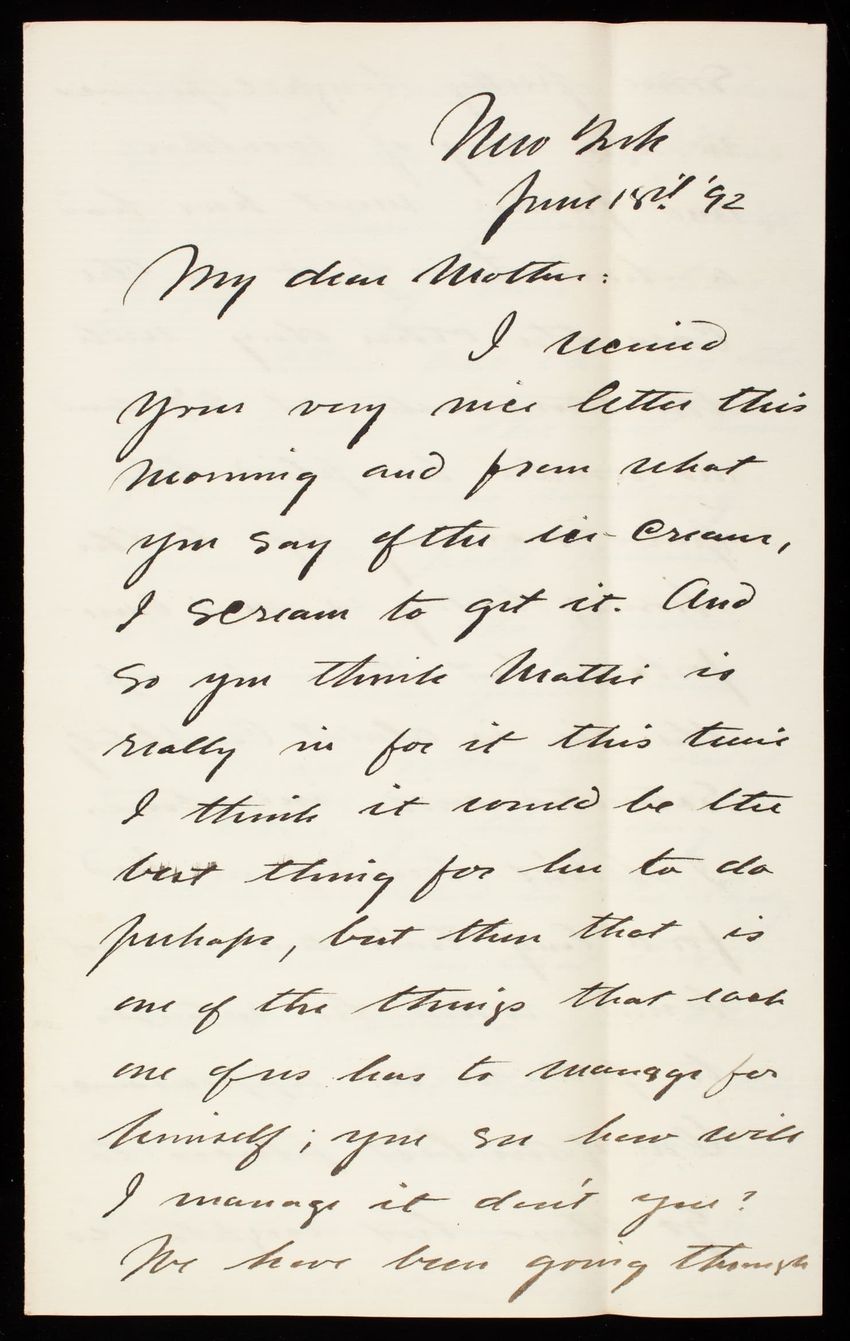 New York
June 18th '92
My dear Mother:
I received
your very nice letter this
morning and from what
you say of the ice-cream,
I scream to get it. And
so you think Mattie is
really in for it this time
I think it would be the
best thing for her to do
perhaps, but then that is
one of the things that each
one of us has to manage for
himself; you see how well
I manage it don't you?
We have been going through